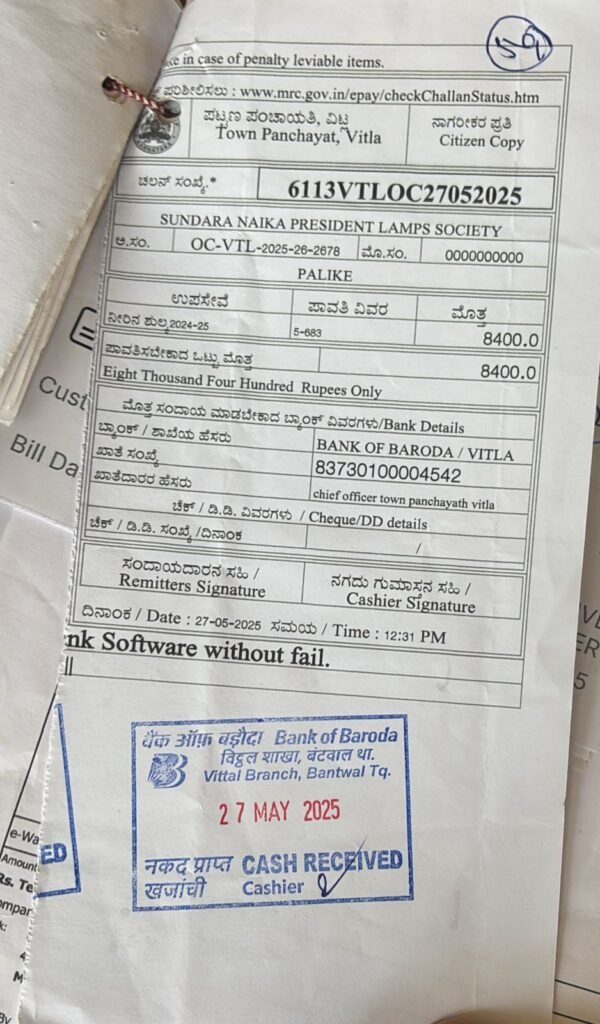 in case of penalty leviable items.
ಪರಿಶೀಲಿಸಲು : www.mrc.gov.in/epay/checkChallanStatus.htm
ಪಟ್ಟಣ ಪಂಚಾಯತಿ, ವಿಟ್ಲ
Town Panchayat, Vitla
ನಾಗರೀಕರ ಪ್ರತಿ
Citizen Copy
ಚಲನ್ ಸಂಖ್ಯೆ.* 6113VTLOC27052025
SUNDARA NAIKA PRESIDENT LAMPS SOCIETY
ಅ.ಸಂ. OC-VTL-2025-26-2678 ಮೊ.ಸಂ. 0000000000
PALIKE
ಉಪಸೇವೆ ಪಾವತಿ ವಿವರ ಮೊತ್ತ
ನೀರಿನ ಶುಲ್ಕ 2024-25 5-683 8400.0
ಪಾವತಿಸಬೇಕಾದ ಒಟ್ಟು ಮೊತ್ತ 8400.0
Eight Thousand Four Hundred Rupees Only
ಮೊತ್ತ ಸಂದಾಯ ಮಾಡಬೇಕಾದ ಬ್ಯಾಂಕ್ ವಿವರಗಳು/Bank Details
ಬ್ಯಾಂಕ್ / ಶಾಖೆಯ ಹೆಸರು BANK OF BARODA / VITLA
ಖಾತೆ ಸಂಖ್ಯೆ 83730100004542
ಖಾತೆದಾರರ ಹೆಸರು chief officer town panchayath vitla
ಚೆಕ್ / ಡಿ.ಡಿ. ವಿವರಗಳು / Cheque/DD details
ಚೆಕ್ / ಡಿ.ಡಿ. ಸಂಖ್ಯೆ /ದಿನಾಂಕ /
ಸಂದಾಯದಾರನ ಸಹಿ /
Remitters Signature
ನಗದು ಗುಮಾಸ್ತನ ಸಹಿ /
Cashier Signature
ದಿನಾಂಕ / Date : 27-05-2025 ಸಮಯ / Time : 12:31 PM
nk Software without fail.
बैंक ऑफ़ बड़ौदा Bank of Baroda
विट्टल शाखा, बंटवाल था.
Vittal Branch, Bantwal Tq.
27 MAY 2025
नकद प्राप्त CASH RECEIVED
खजांची Cashier
Cust
Bill Da
e-Wa
ED
Amount
Rs. Te
ompar
k:
4
M
By
5